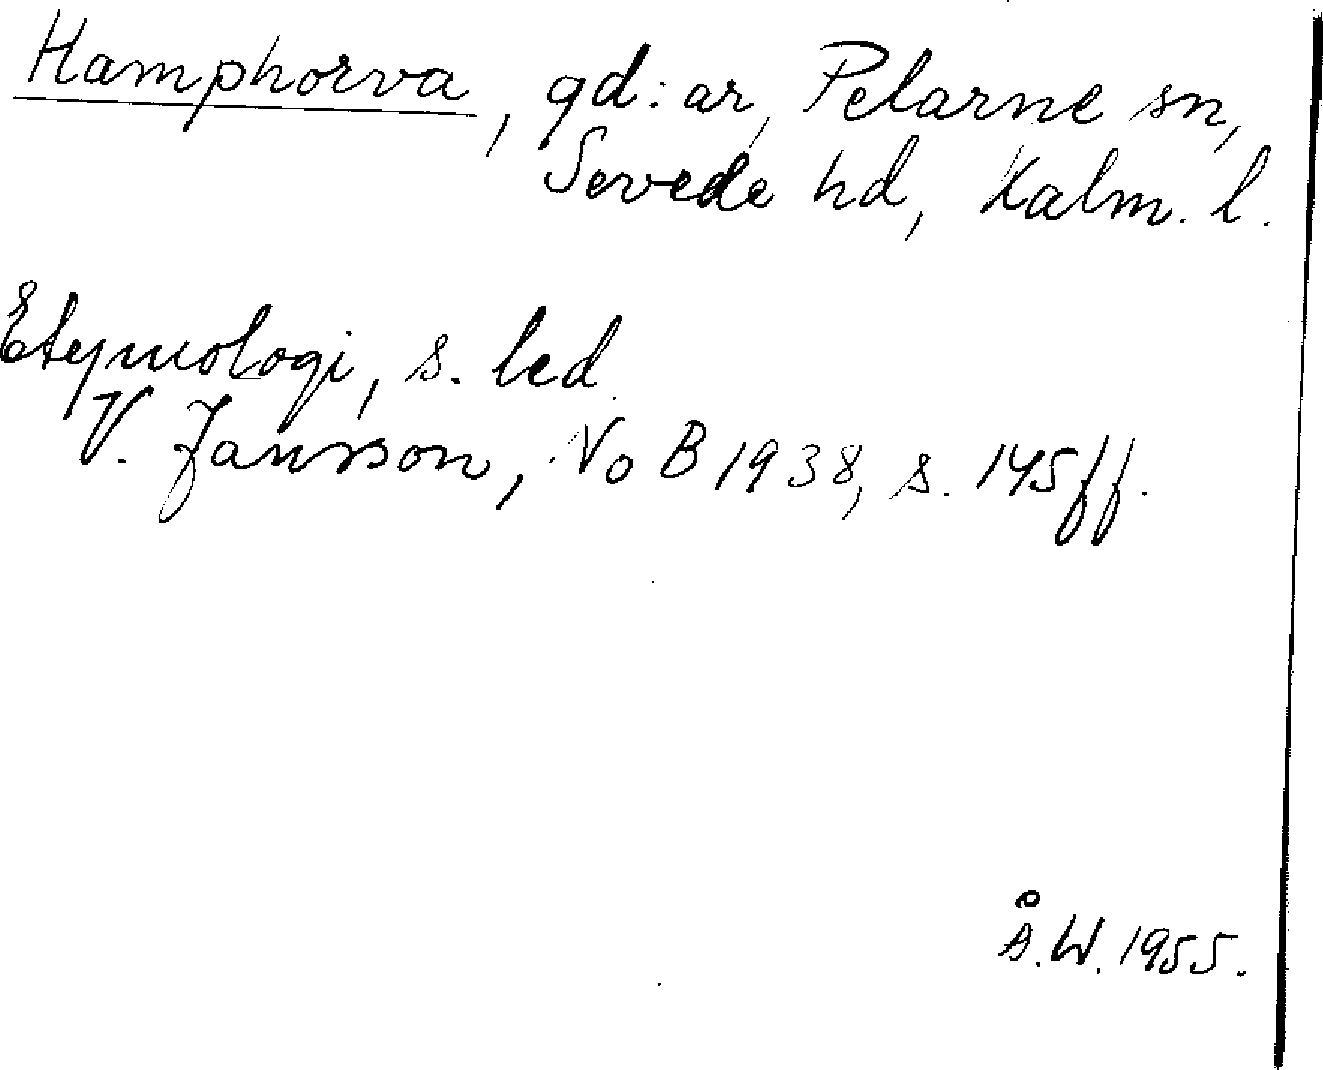 Hamphorva, gd:ar, Pelarne sn,
Sevede hd, Kalm. l.
Etymologi, s. led.
V. Jansson, NoB 1938, s. 145 ff.
Å.W. 1955.